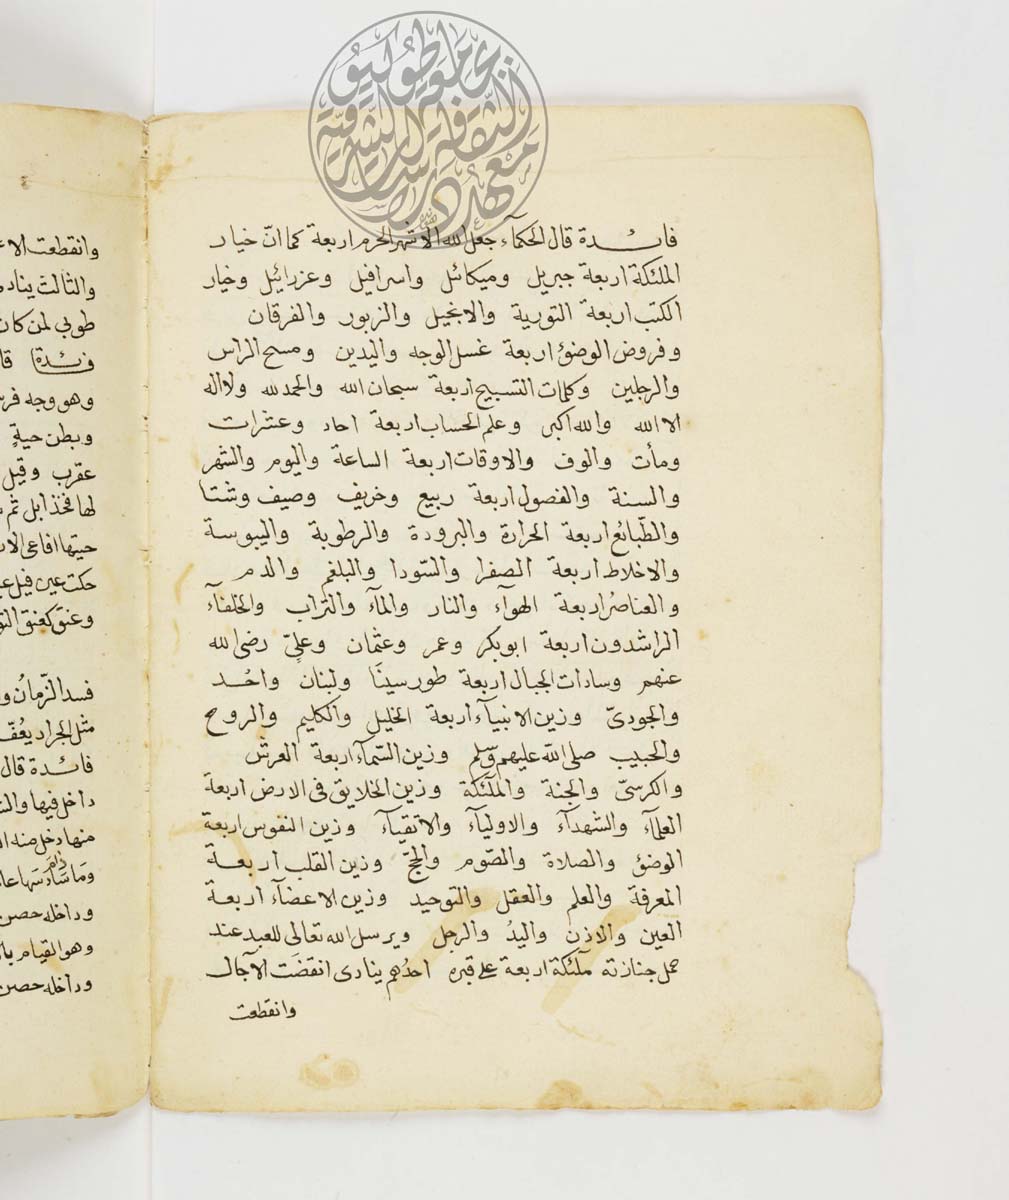 فائدة قال الحكمآء جعل الله الاشهر الحرم اربعة كما انّ خيار
الملئكة اربعة جبريل وميكائل واسرافيل وعزرائيل وخيار
الكتب اربعة التورية والانجيل والزبور والفرقان
وفروض الوضؤ اربعة غسل الوجه واليدين ومسح الراس
والرجلين وكلمات التسبيح اربعة سبحان الله والحمدلله ولااله
الا الله والله اكبر وعلم الحساب اربعة احاد وعشرات
ومأت والوف والاوقات اربعة الساعة واليوم والشهر
والسنة والفصول اربعة ربيع وخريف وصيف وشتا
والطّبائع اربعة الحرارة والبرودة والرطوبة واليبوسة
والاخلاط اربعة الصفرا والسّودا والبلغم والدم
والعناصر اربعة الهوآء والنار والمآء والتراب والخلفآء
الراشدون اربعة ابوبكر وعمر وعثمان وعليّ رضى الله
عنهم وسادات الجبال اربعة طور سينَا ولبنان واحُد
والجودىّ وزين الانبيآء اربعة الخليل والكليم والروح
والحبيب صلى الله عليهم وسّلم وزين السّمآء اربعة العرش
والكرسىّ والجنة والملئكة وزين الخلايق فى الارض اربعة
العلمآء والشهدآء والاوليآء والاتقيآء وزين النفوس اربعة
الوضؤ والصلاة والصّوم والحجّ وزين القلب اربعة
المعرفة والعلم والعقل والتوحيد وزين الاعضآء اربعة
العين والاذن واليدُ والرجل ويرسل الله تعالى للعبد عند
حمل جنازته ملئكة اربعة على قبره احدُهم ينادى انقضَت الآجال
وانقطعت
وانقطعت الا
والثالث يناد
طوبى لمن كان
فئدة قا
وهو وجه فر
وبطن حيةٍ
عقرب وقيل
لها فخذا بل ثم
حيتها افاعى الا
حكت عين فيل ع
وعنق كعنق الثو
فسد الزّمانُ و
مثل الجراد يعُفّ
فائدة قال
داخل فيها وال
منها دخل منه ال
وداخله حصن
وهو القيام با
وداخله حصن
جامعة طوكيو
معهد دراسات الثقافة الشرقية